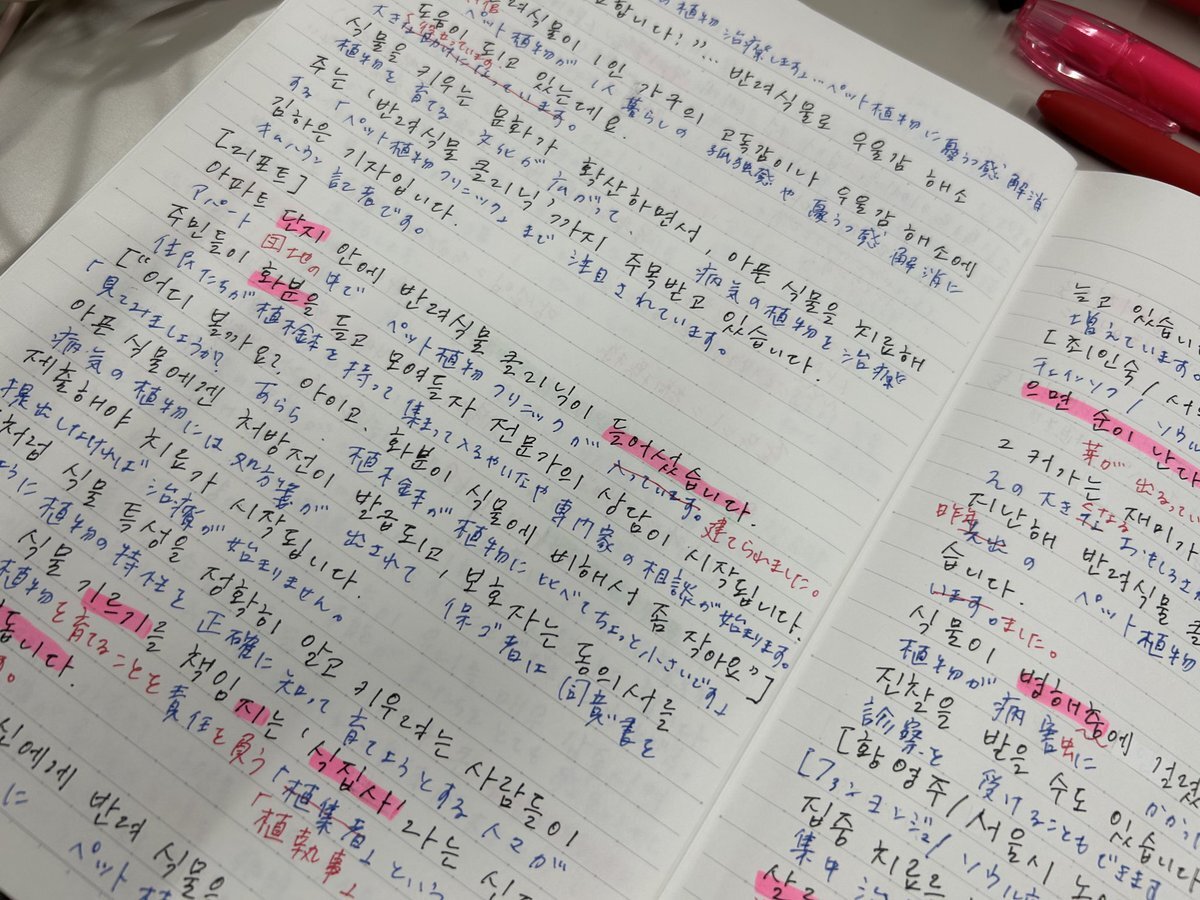 の植物治療します」…ペット植物に憂うつ感解消
합니다?"... 반려식물로 우울감 해소
려식물이 1인 가구의 고독감이나 우울감 해소에
ペット植物が1人暮らしの孤独感や憂うつ感解消に
도움이 되고 있는데요.
大きな助けになっています。
식물을 키우는 문화가 확산하면서, 아픈 식물을 치료해
植物を育てる文化が広がって、病気の植物を治療
주는 '반려식물 클리닉'까지 주목받고 있습니다.
する「ペット植物クリニック」まで注目されています。
김하은 기자입니다.
キムハウン記者です。
[리포트]
아파트 단지 안에 반려식물 클리닉이 들어섰습니다.
アパート団地の中でペット植物クリニックが入っています。建てられました。
주민들이 화분을 들고 모여들자 전문가의 상담이 시작됩니다.
住民たちが植木鉢を持って集まって専門家の相談が始まります。
["어디 볼까요? 아이고. 화분이 식물에 비해서 좀 작아요"]
「見てみましょうか? あらら、植木鉢が植物に比べてちょっと小さいです」
아픈 식물에겐 처방전이 발급되고, 보호자는 동의서를
病気の植物には処方箋が出されて 保ゴ者は同意書を
제출해야 치료가 시작됩니다.
提出しなければ治療が始まりません。
처럼 식물 특성을 정확히 알고 키우려는 사람들이
ように植物の特性を正確に知って育てようとする人々が
식물 기르기를 책임지는 '식집사'라는
植物を育てることを責任を負う「植集者」という
「植執事」
됩니다.
신에게 반려 식물은
に ペット植
늘고 있습니
増えています。
[최인숙/서
チェインソク/ソウル
으면 순이 난다
芽が出る
그 커가는 재미가
その大きくなるおもしろさ
지난해 반려식물 클
昨年 の ペット植物
습니다.
います。ました。
식물이 병해충에 걸렸
植物が病害虫に かか
진찰을 받을 수도 있습니다
診察を受けることもできます
[황영주/서울시 농
[ファンヨンジュ/ソウル市
집중 치료
集中 治
살